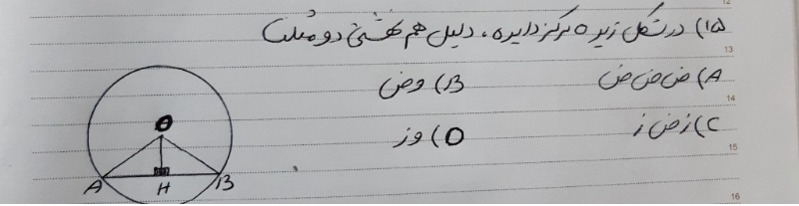 ۱۵) در شکل زیر O مرکز دایره، دلیل هم نهشتی دو مثلث
A) ض ض ض    B) وض
C) ز ض ز    D) وز
O
A H B
12
13
14
15
16